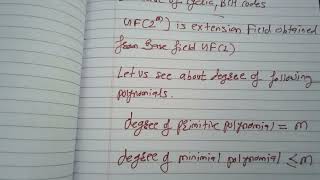 of cyclic, BCH codes
GF(2^m) is extension field obtained
from Base field GF(2)
Let us see about degree of following
polynomials.
degree of primitive polynomial = m
degree of minimal polynomial ≤ m